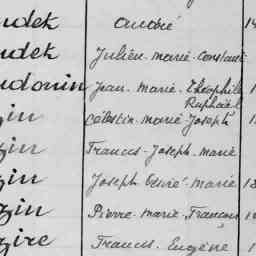 udek André 1
udek Julien-Marie-Constant
udonin Jean-Marie-Théophile 1
Raphaël
zin Célestin-Marie-Joseph 1
zin Francis-Joseph-Marie
zin Joseph Désiré-Marie 1
zin Pierre-Marie-François
zire Francis-Eugène 1